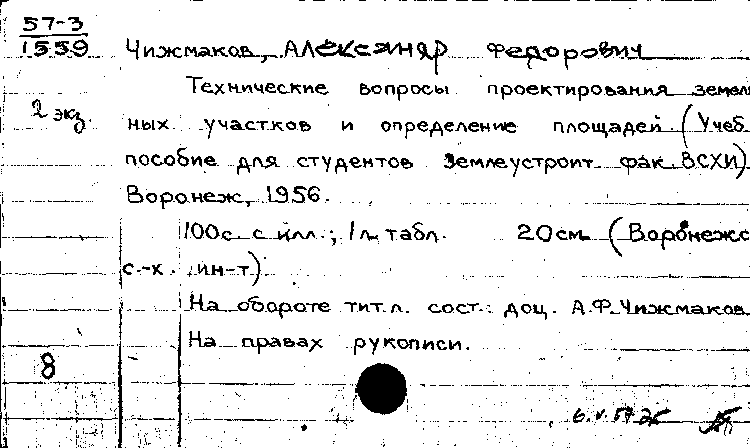 57-3
1559
Чижмаков, Александр Федорович
Технические вопросы проектирования земел
2 экз.
ных участков и определение площадей. (Учеб.
пособие для студентов землеустроит. фак. ВСХИ)
Воронеж, 1956.
100с. с илл.; 1 л. табл. 20см. (Воронежс
с.-х. ин-т).
На обороте тит.л. сост.: доц. А.Ф.Чижмаков
На правах рукописи.
8
6.V.57